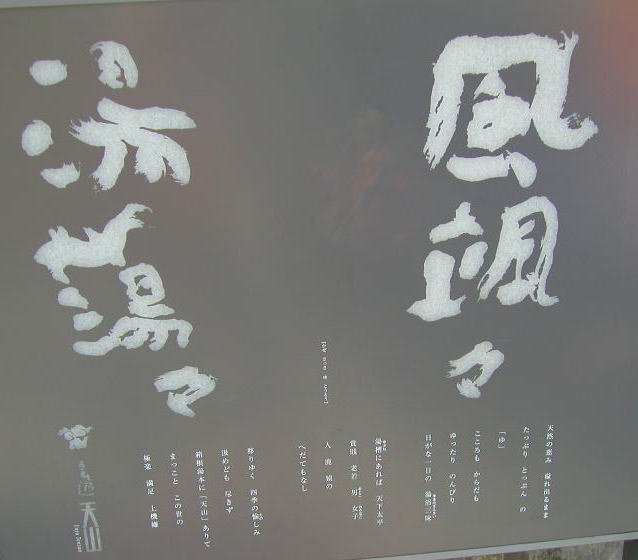 風颯々
湯蕩々
天然の恵み 溢れ出るまま
たっぷり とっぷん の
「ゆ」
こころも からだも
ゆったり のんびり
日がな一日の 湯浴三昧
湯槽にあれば 天下太平
貴賎 老若 男 女子
人 鹿 猿の
へだてもなし
移りゆく 四季の愉しみ
汲めども 尽きず
箱根湯本に「天山」ありて
まっこと この世の
極楽 満足 上機嫌
天山